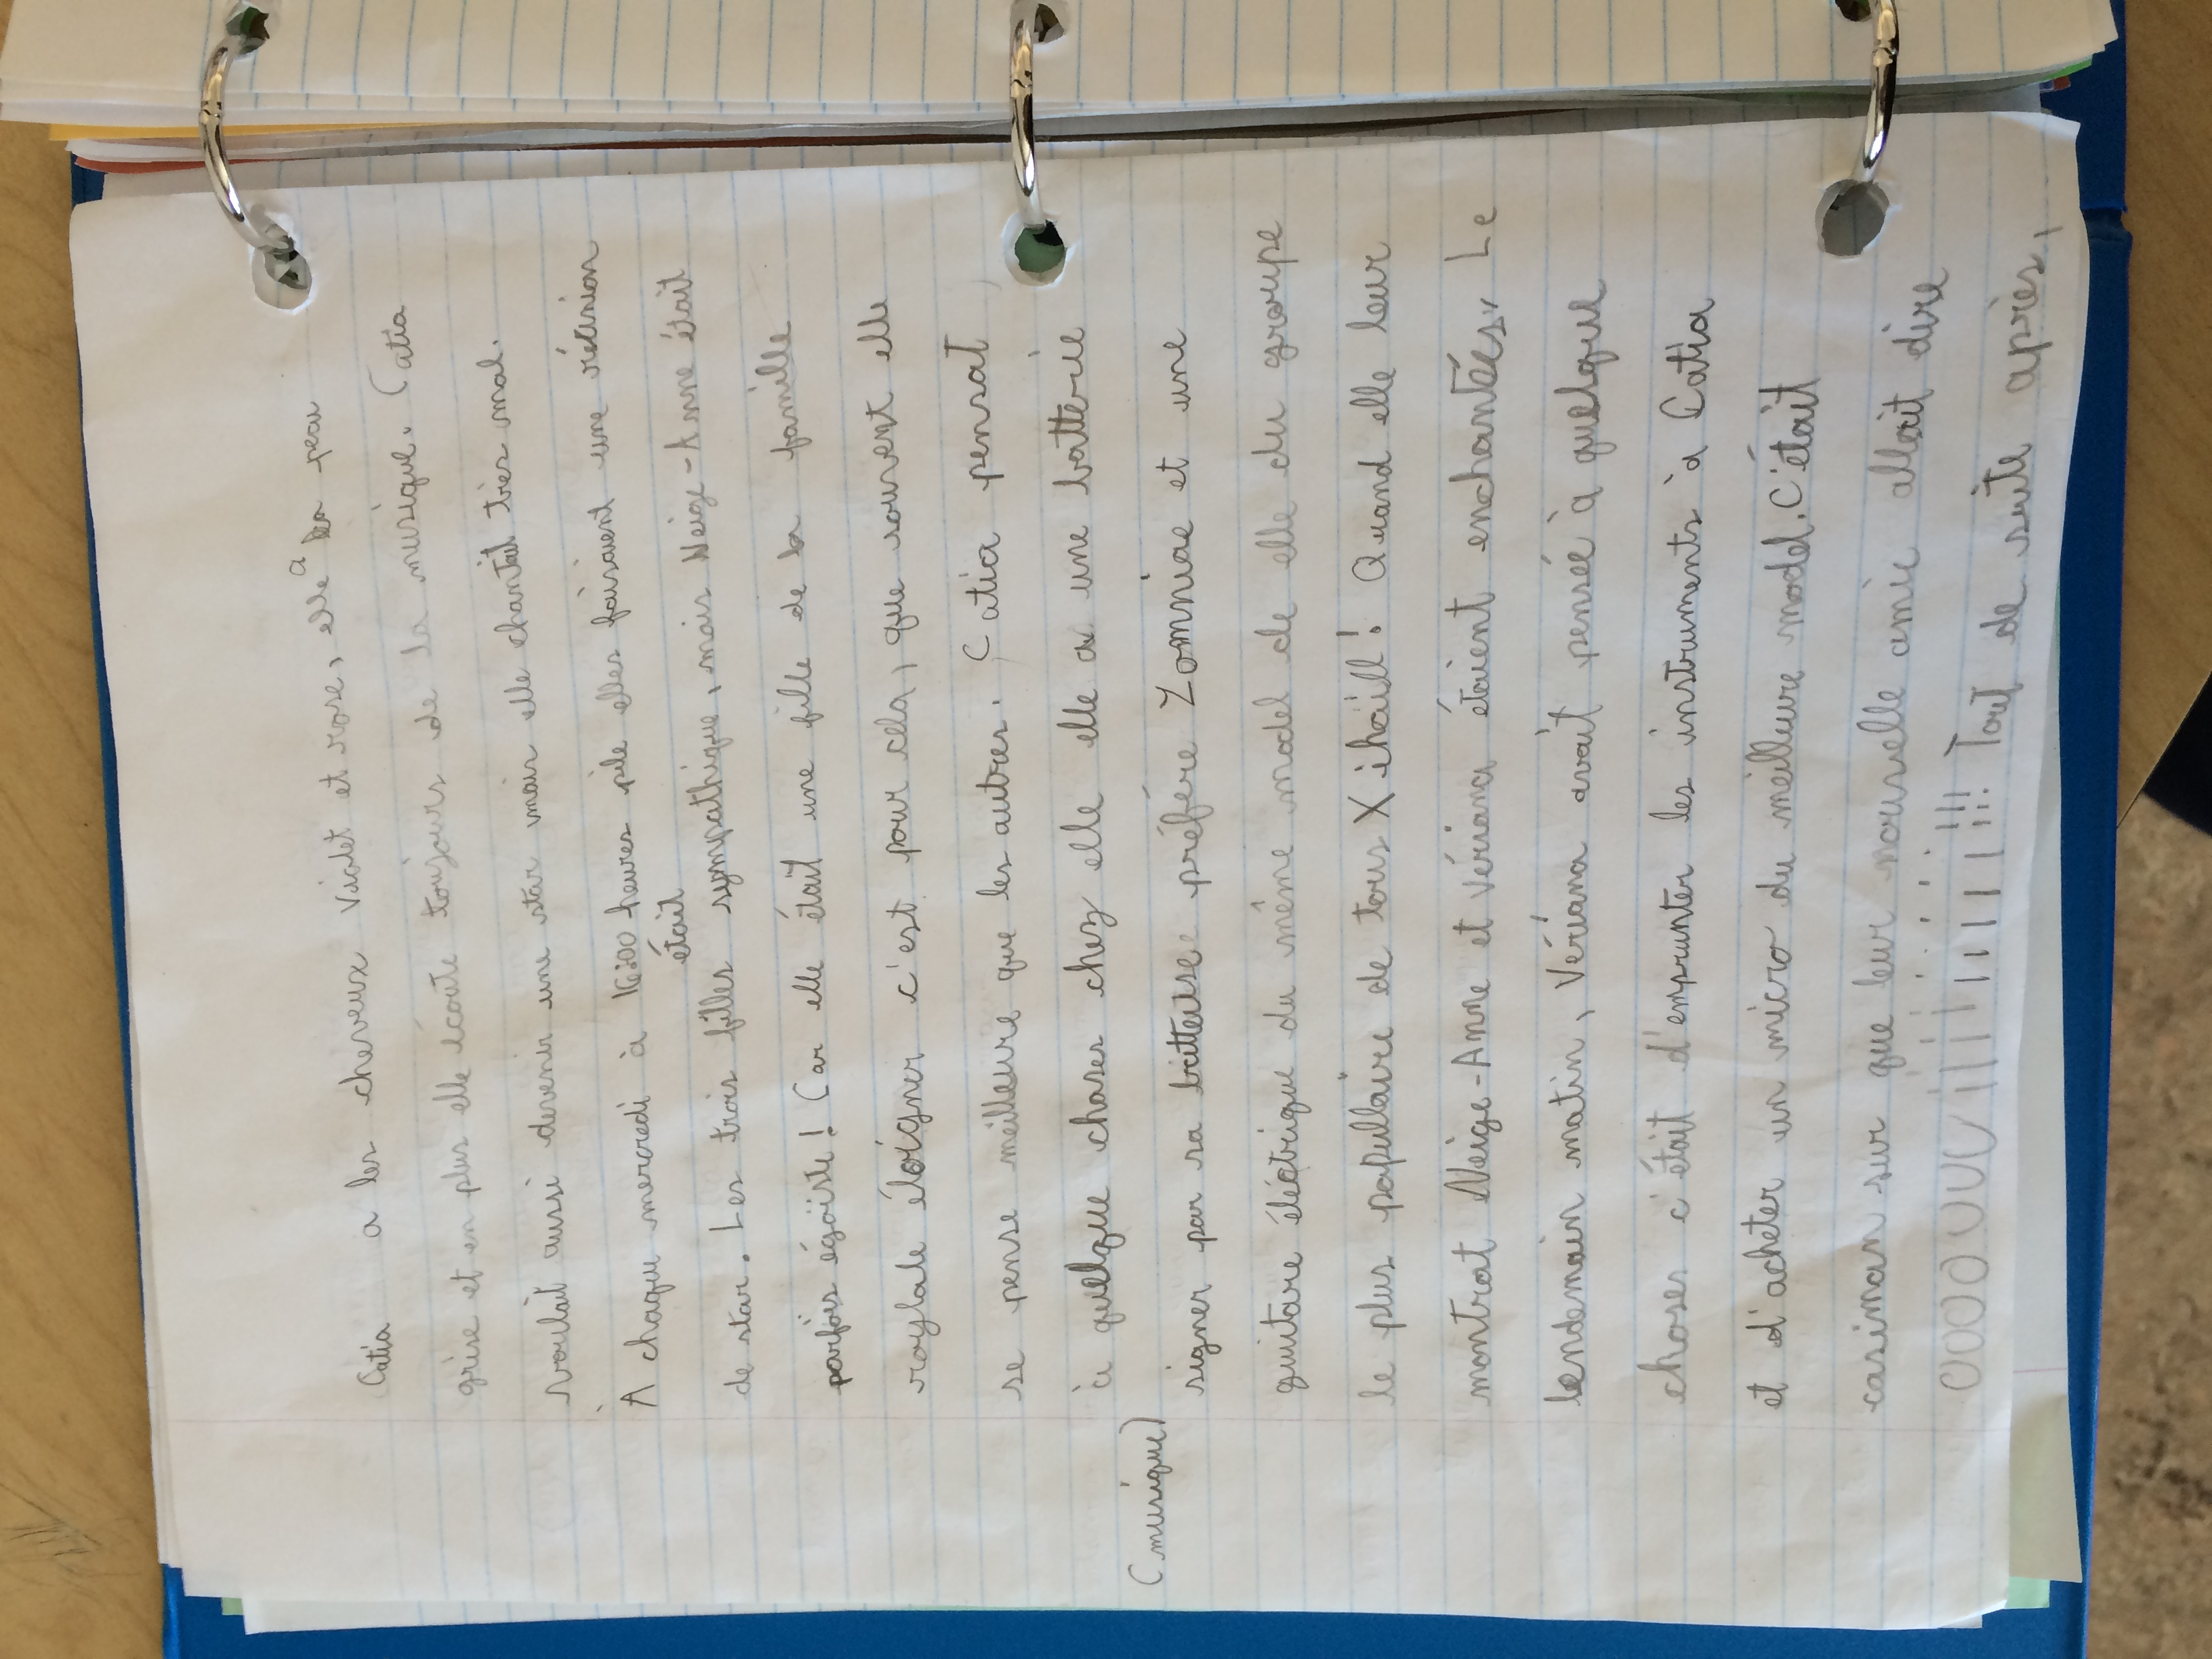 Catia a les cheveux violet et rose, elle a la peau
grise et en plus elle écoute toujours de la musique. Catia
voulait aussi devenir une star mais elle chantait très mal.
À chaque mercredi à 16:00 heures pile elles faisaient une réunion
de star. Les trois filles était sympathique, mais Neige-Anne était
parfois égoïste! Car elle était une fille de la famille
roylale éloigner c'est pour cela, que souvent elle
se pense meilleure que les autres. Catia pensat
à quelque choses chez elle elle a une batterie
(musique)
signer par sa batteuse préfére Zomniae et une
guitare éléctrique du même model de elle du groupe
le plus populaire de tous Xihaill! Quand elle leur
montrat Neige-Anne et Vériana étaient enchantées. Le
lendemain matin, Vériana avait pensée à quelque
choses c'était d'emprunter les instruments à Catia
et d'acheter un micro du meilleure model. C'était
casiman sur que leur nouvelle amie allait dire
OOOOUUUUiiiiiiiii!!! Tout de suite après,